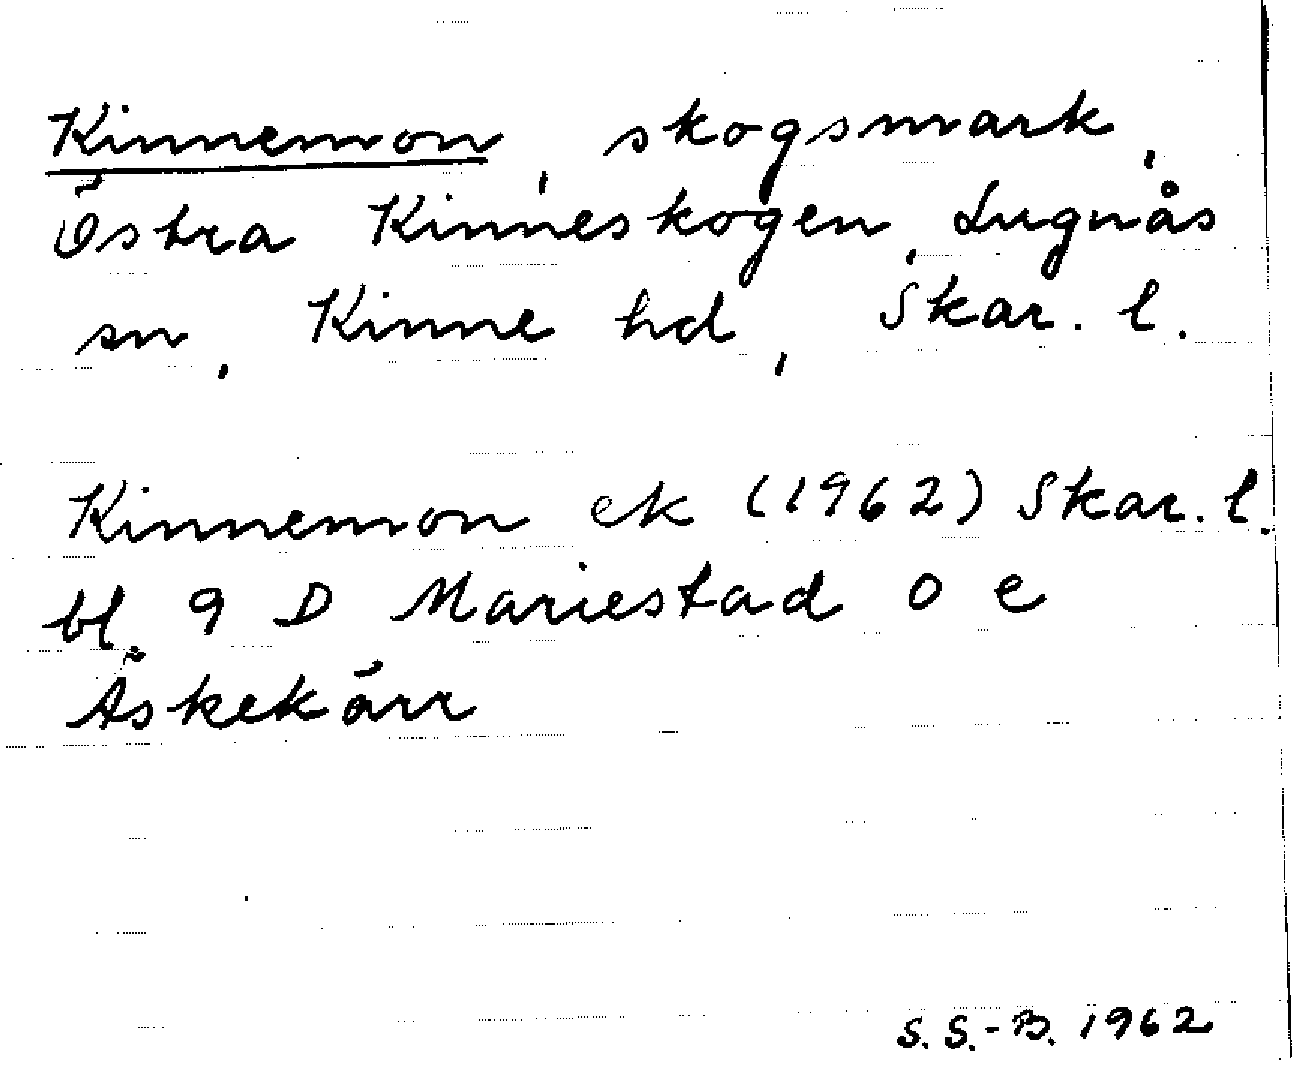 Kinnemon, skogsmark,
Östra Kinneskogen, Lugnås
sn, Kinne hd, Skar. l.
Kinnemon ek (1962) Skar. l.
bl. 9 D Mariestad 0 e
Äskekärr
S. S.-B. 1962